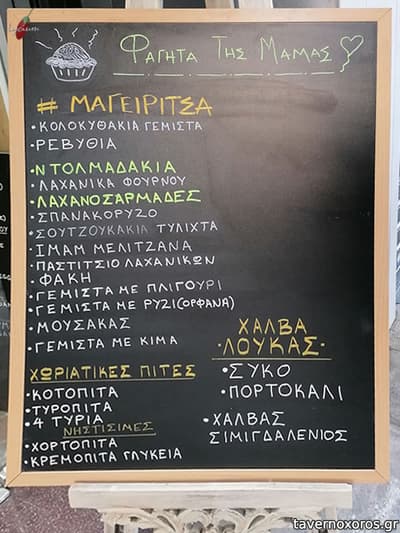 ΦΑΓΗΤΑ ΤΗΣ ΜΑΜΑΣ
# ΜΑΓΕΙΡΙΤΣΑ
• ΚΟΛΟΚΥΘΑΚΙΑ ΓΕΜΙΣΤΑ
• ΡΕΒΥΘΙΑ
• ΝΤΟΛΜΑΔΑΚΙΑ
• ΛΑΧΑΝΙΚΑ ΦΟΥΡΝΟΥ
• ΛΑΧΑΝΟΣΑΡΜΑΔΕΣ
• ΣΠΑΝΑΚΟΡΥΖΟ
• ΣΟΥΤΖΟΥΚΑΚΙΑ ΤΥΛΙΧΤΑ
• ΙΜΑΜ ΜΕΛΙΤΖΑΝΑ
• ΠΑΣΤΙΤΣΙΟ ΛΑΧΑΝΙΚΩΝ
• ΦΑΚΗ
• ΓΕΜΙΣΤΑ ΜΕ ΠΛΙΓΟΥΡΙ
• ΓΕΜΙΣΤΑ ΜΕ ΡΥΖΙ(ΟΡΦΑΝΑ)
• ΜΟΥΣΑΚΑΣ
• ΓΕΜΙΣΤΑ ΜΕ ΚΙΜΑ
ΧΩΡΙΑΤΙΚΕΣ ΠΙΤΕΣ
• ΚΟΤΟΠΙΤΑ
• ΤΥΡΟΠΙΤΑ
• 4 ΤΥΡΙΑ
ΝΗΣΤΙΣΙΜΕΣ
• ΧΟΡΤΟΠΙΤΑ
• ΚΡΕΜΟΠΙΤΑ ΓΛΥΚΕΙΑ
ΧΑΛΒΑ
• ΛΟΥΚΑΣ •
• ΣΥΚΟ
• ΠΟΡΤΟΚΑΛΙ
• ΧΑΛΒΑΣ
ΣΙΜΙΓΔΑΛΕΝΙΟΣ
tavernoxoros.gr